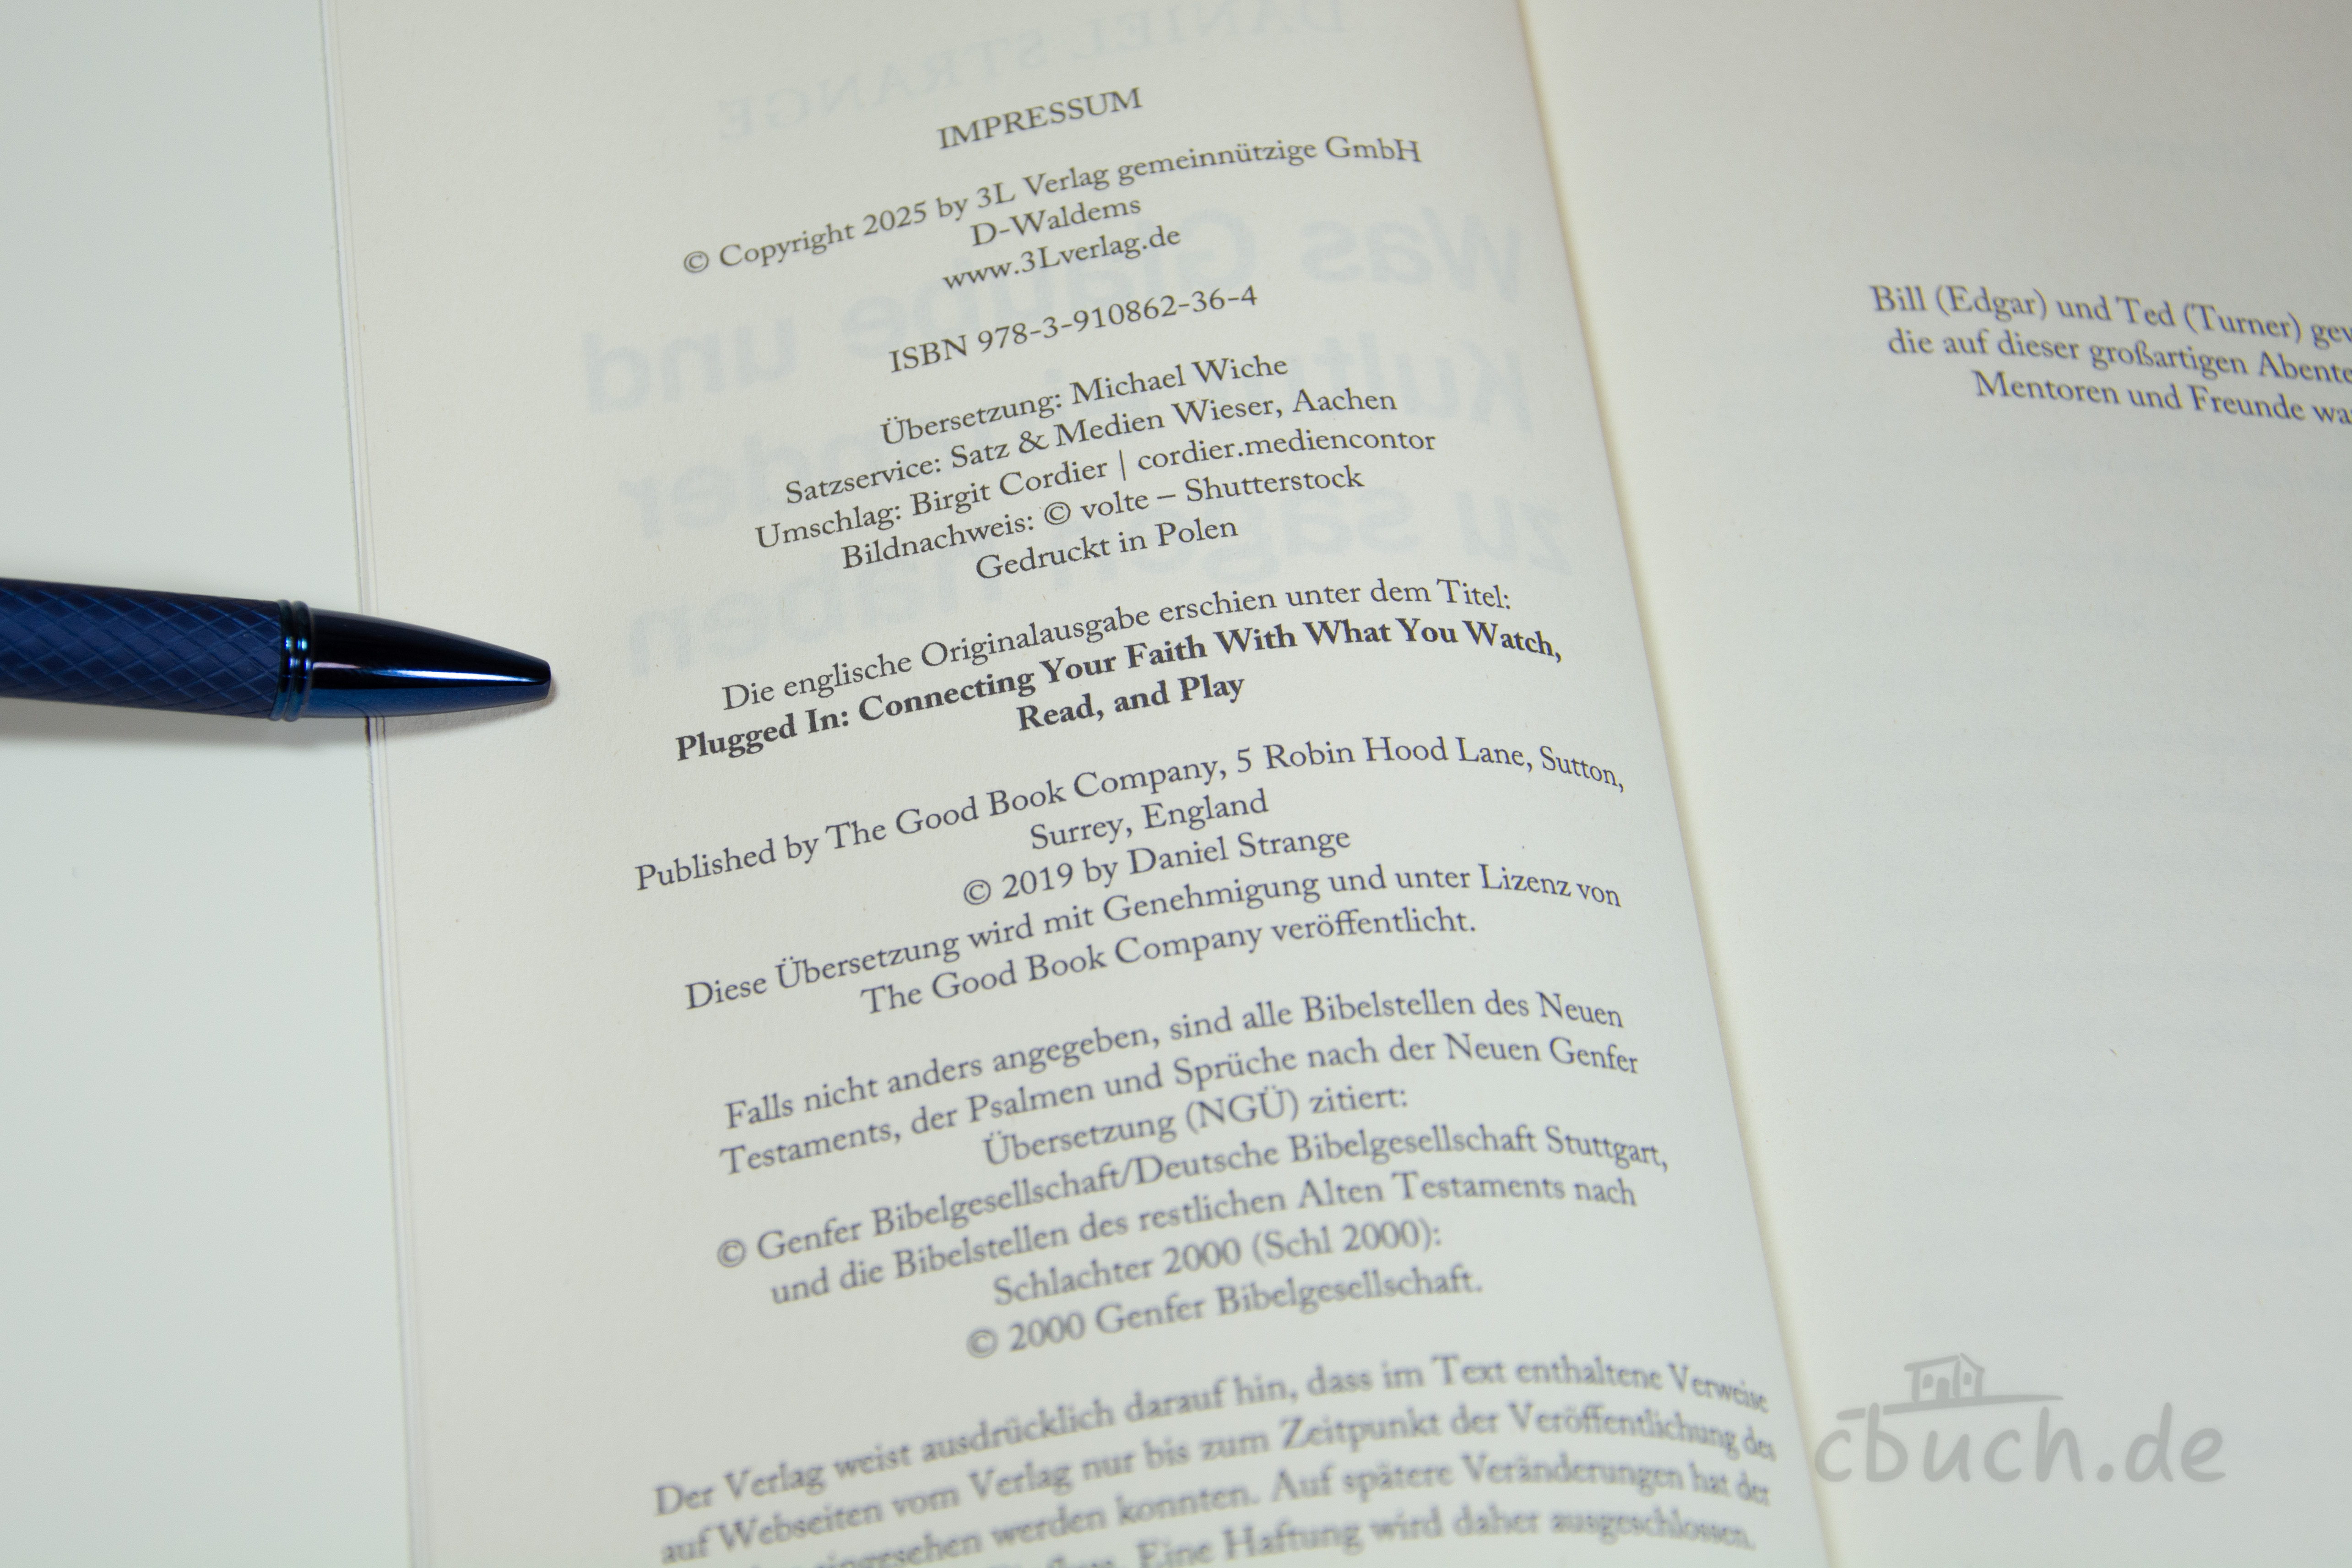 DANIEL STRANGE
IMPRESSUM
© Copyright 2025 by 3L Verlag gemeinnützige GmbH
D-Waldems
www.3Lverlag.de
ISBN 978-3-910862-36-4
Übersetzung: Michael Wiche
Satzservice: Satz & Medien Wieser, Aachen
Umschlag: Birgit Cordier | cordier.mediencontor
Bildnachweis: © volte – Shutterstock
Gedruckt in Polen
Die englische Originalausgabe erschien unter dem Titel:
Plugged In: Connecting Your Faith With What You Watch,
Read, and Play
Published by The Good Book Company, 5 Robin Hood Lane, Sutton,
Surrey, England
© 2019 by Daniel Strange
Diese Übersetzung wird mit Genehmigung und unter Lizenz von
The Good Book Company veröffentlicht.
Falls nicht anders angegeben, sind alle Bibelstellen des Neuen
Testaments, der Psalmen und Sprüche nach der Neuen Genfer
Übersetzung (NGÜ) zitiert:
© Genfer Bibelgesellschaft/Deutsche Bibelgesellschaft Stuttgart,
und die Bibelstellen des restlichen Alten Testaments nach
Schlachter 2000 (Schl 2000):
© 2000 Genfer Bibelgesellschaft.
Der Verlag weist ausdrücklich darauf hin, dass im Text enthaltene Verweise
auf Webseiten vom Verlag nur bis zum Zeitpunkt der Veröffentlichung des
eingesehen werden konnten. Auf spätere Veränderungen hat der
Eine Haftung wird daher ausgeschlossen.
Bill (Edgar) und Ted (Turner) gew
die auf dieser großartigen Abente
Mentoren und Freunde wa
cbuch.de